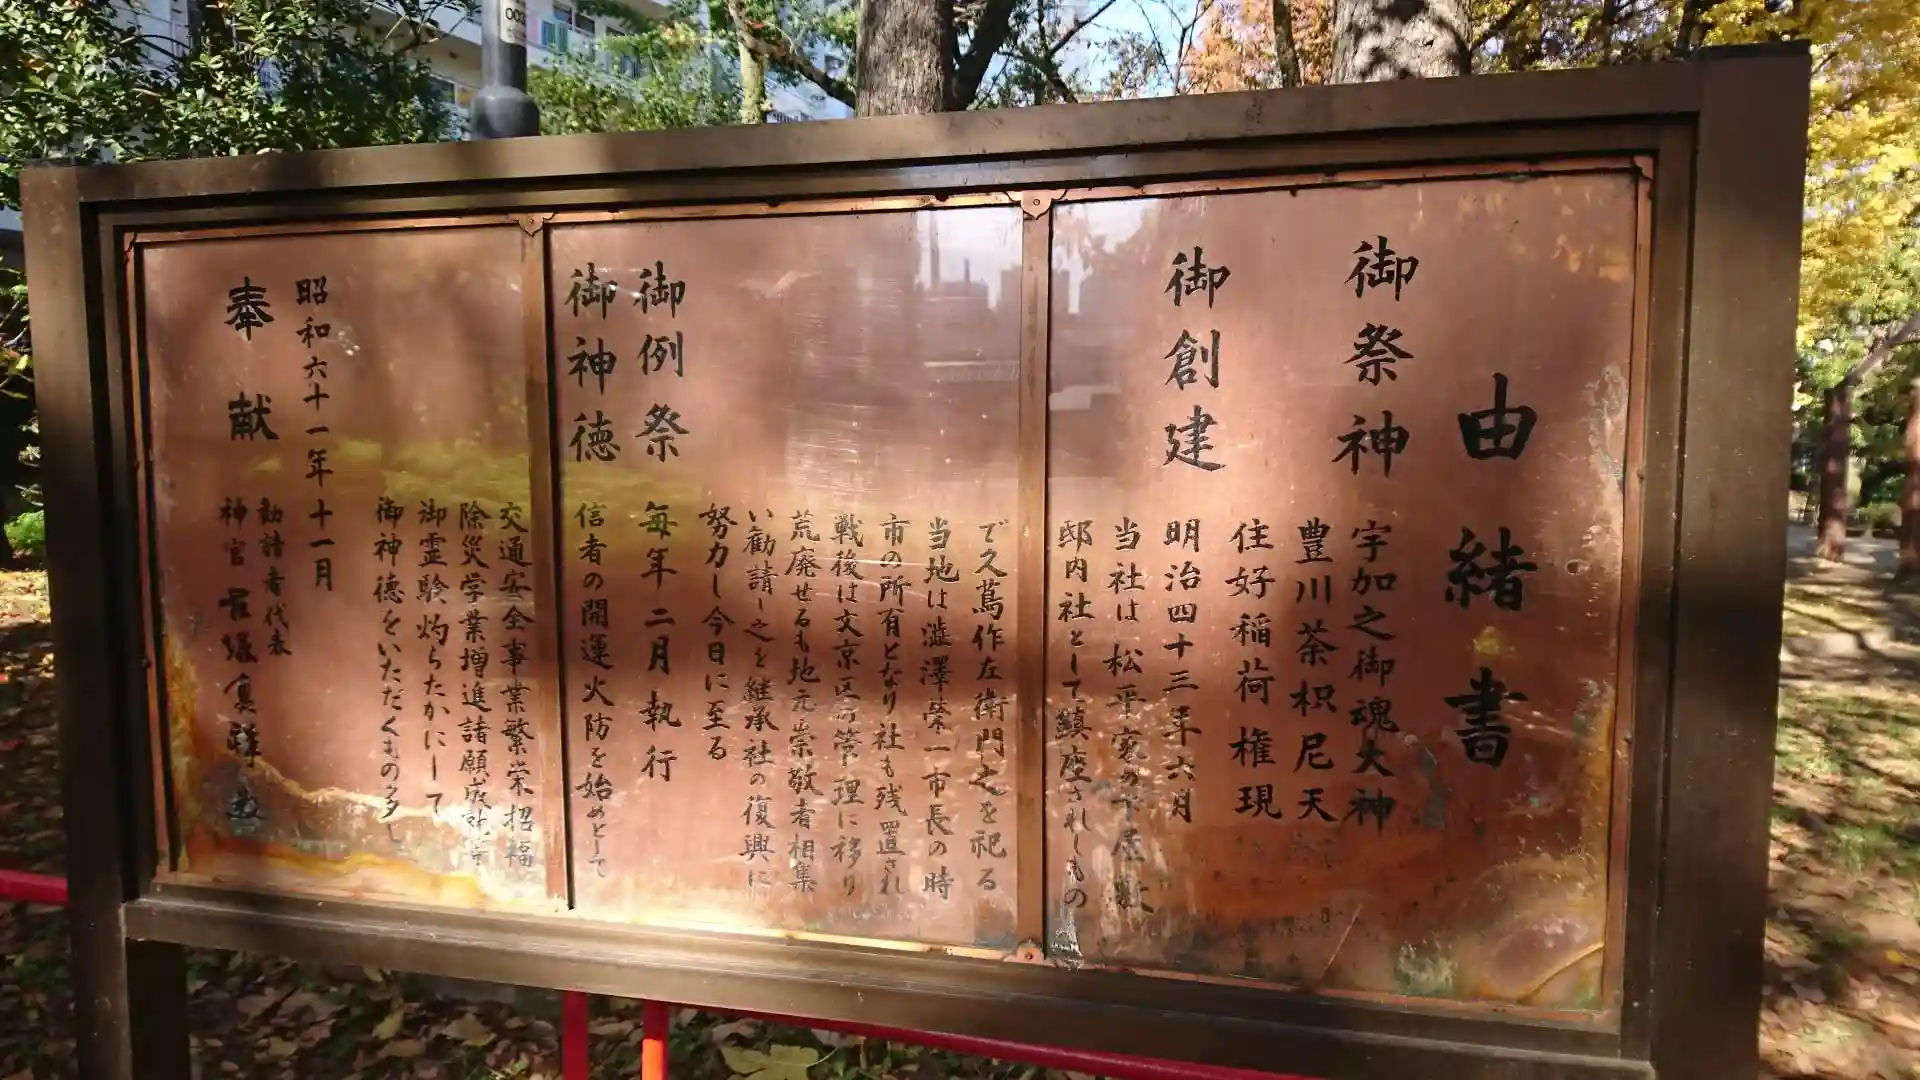 由緒書
御祭神 宇加之御魂大神
豊川荼枳尼天
住好稲荷権現
御創建 明治四十三年六月
当社は松平家の下屋敷
邸内社として鎮座されしもの
で久蔦作左衛門之を祀る
当地は澁澤栄一市長の時
市の所有となり社も残置され
戦後は文京区の管理に移り
荒廃せるも地元崇敬者相集
い勧請し之を継承社の復興に
努力し今日に至る
御例祭 毎年二月執行
御神徳 信者の開運火防を始めとして
交通安全事業繁栄招福
除災学業増進諸願成就等
御霊験灼らたかにして
御神徳をいただくもの多し
昭和六十一年十一月
奉献 勧請者代表
神官
002